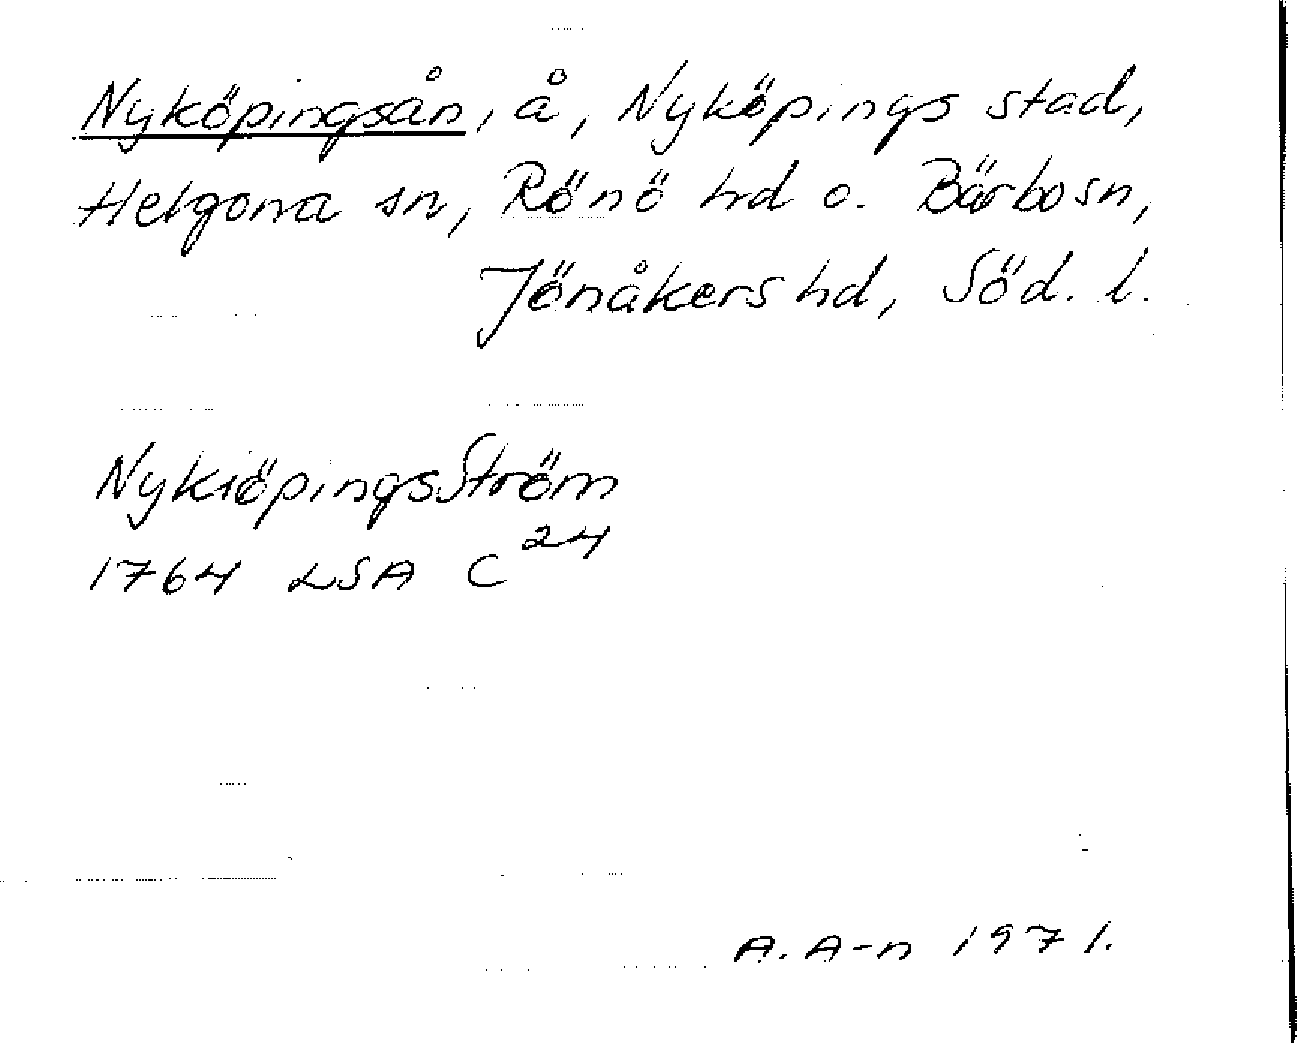 Nyköpingsån, å, Nyköpings stad,
Helgona sn, Rönö hd o. Bärbo sn,
Jönåkers hd, Söd. l.
NykiöpingsStröm
1764 LSA C 24
A. A-n 1971.